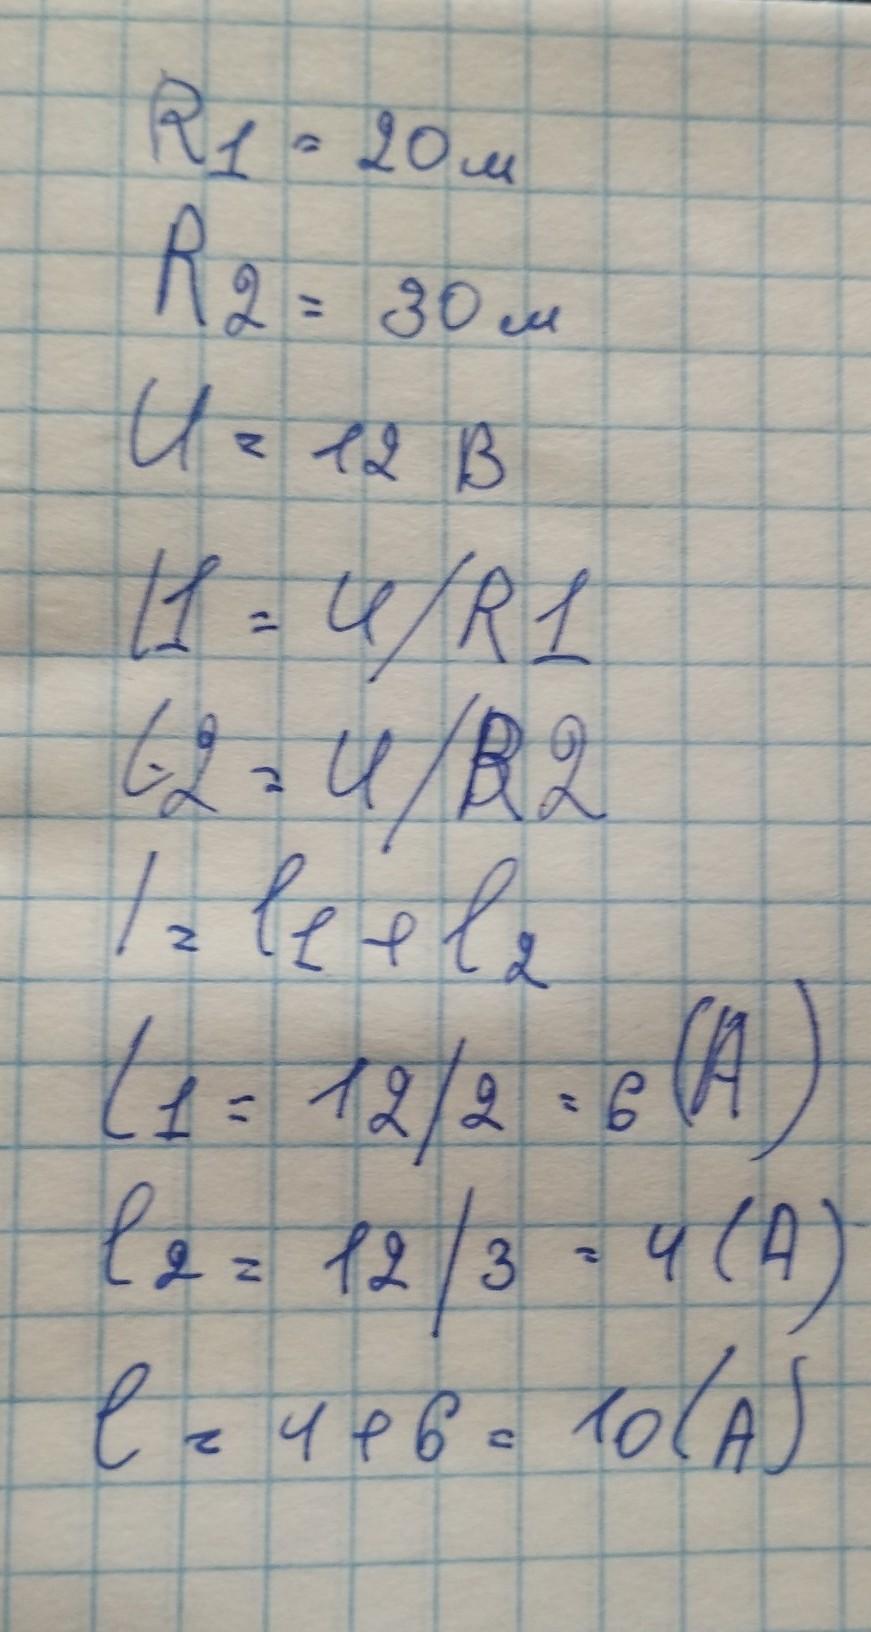 R1 = 2Ом
R2 = 3Ом
U = 12 В
I1 = U/R1
I2 = U/R2
I = I1 + I2
I1 = 12/2 = 6 (А)
I2 = 12/3 = 4 (А)
I = 4 + 6 = 10 (А)